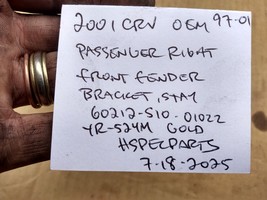 2001 CRV OEM 97-01
PASSENGER RIGHT
FRONT FENDER
BRACKET, STAY
60212-S10-01022
YR-524M GOLD
HSPECPARTS
7-18-2025